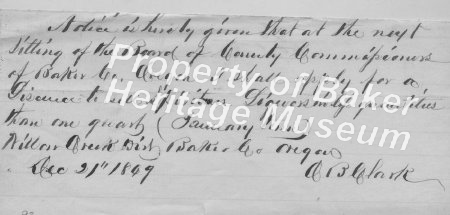 Notice is hereby given that at the next
sitting of the Board of County Commissioners
of Baker Co. Oregon I shall apply for a
License to sell Spiritous Liquors in quantities
than one quart (January
Willow Creek Dist Baker Co Oregon
Dec 21st 1869 C B Clark
Property of Baker
Heritage Museum